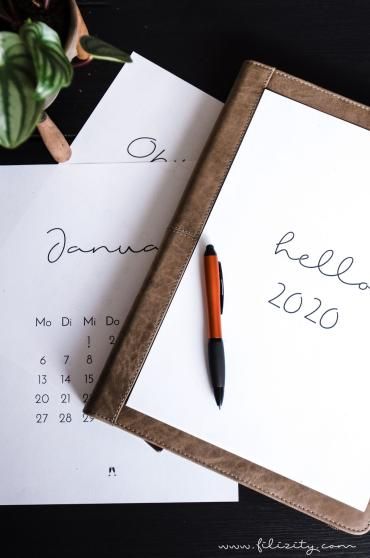 Janua
Mo Di Mi Do
! 2
6 7 8
13 14 15
20 21
27 28 29
hello
2020
www.filizity.com